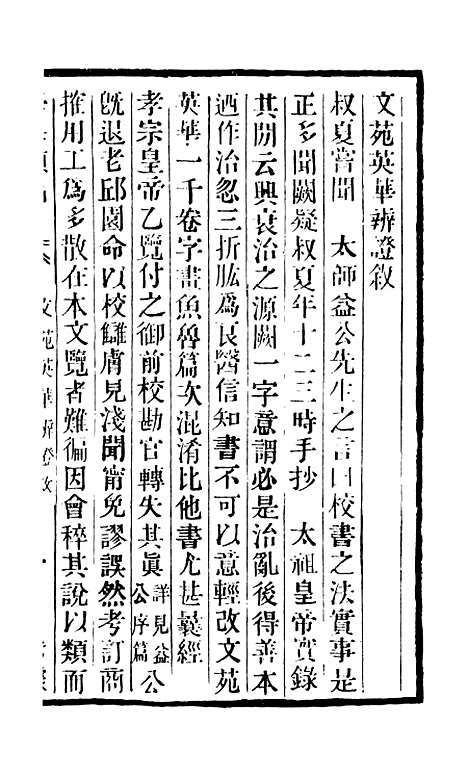 文苑英華辨證敘
叔夏嘗聞　太師益公先生之言曰校書之法實事是
正多聞闕疑叔夏年十二三時手抄　太祖皇帝實錄
其間云興衰治之源闕一字意謂必是治亂後得善本
迺作治忽三折肱爲良醫信知書不可以意輕改文苑
英華一千卷字畫魚魯篇次混淆比他書尤甚曩經
孝宗皇帝乙覽付之御前校勘官轉失其眞詳見益公序篇公
旣退老邱園命以校讎膚見淺聞甯免謬誤然考訂商
搉用工爲多散在本文覽者難徧因會稡其說以類而
文苑英華辨證敘